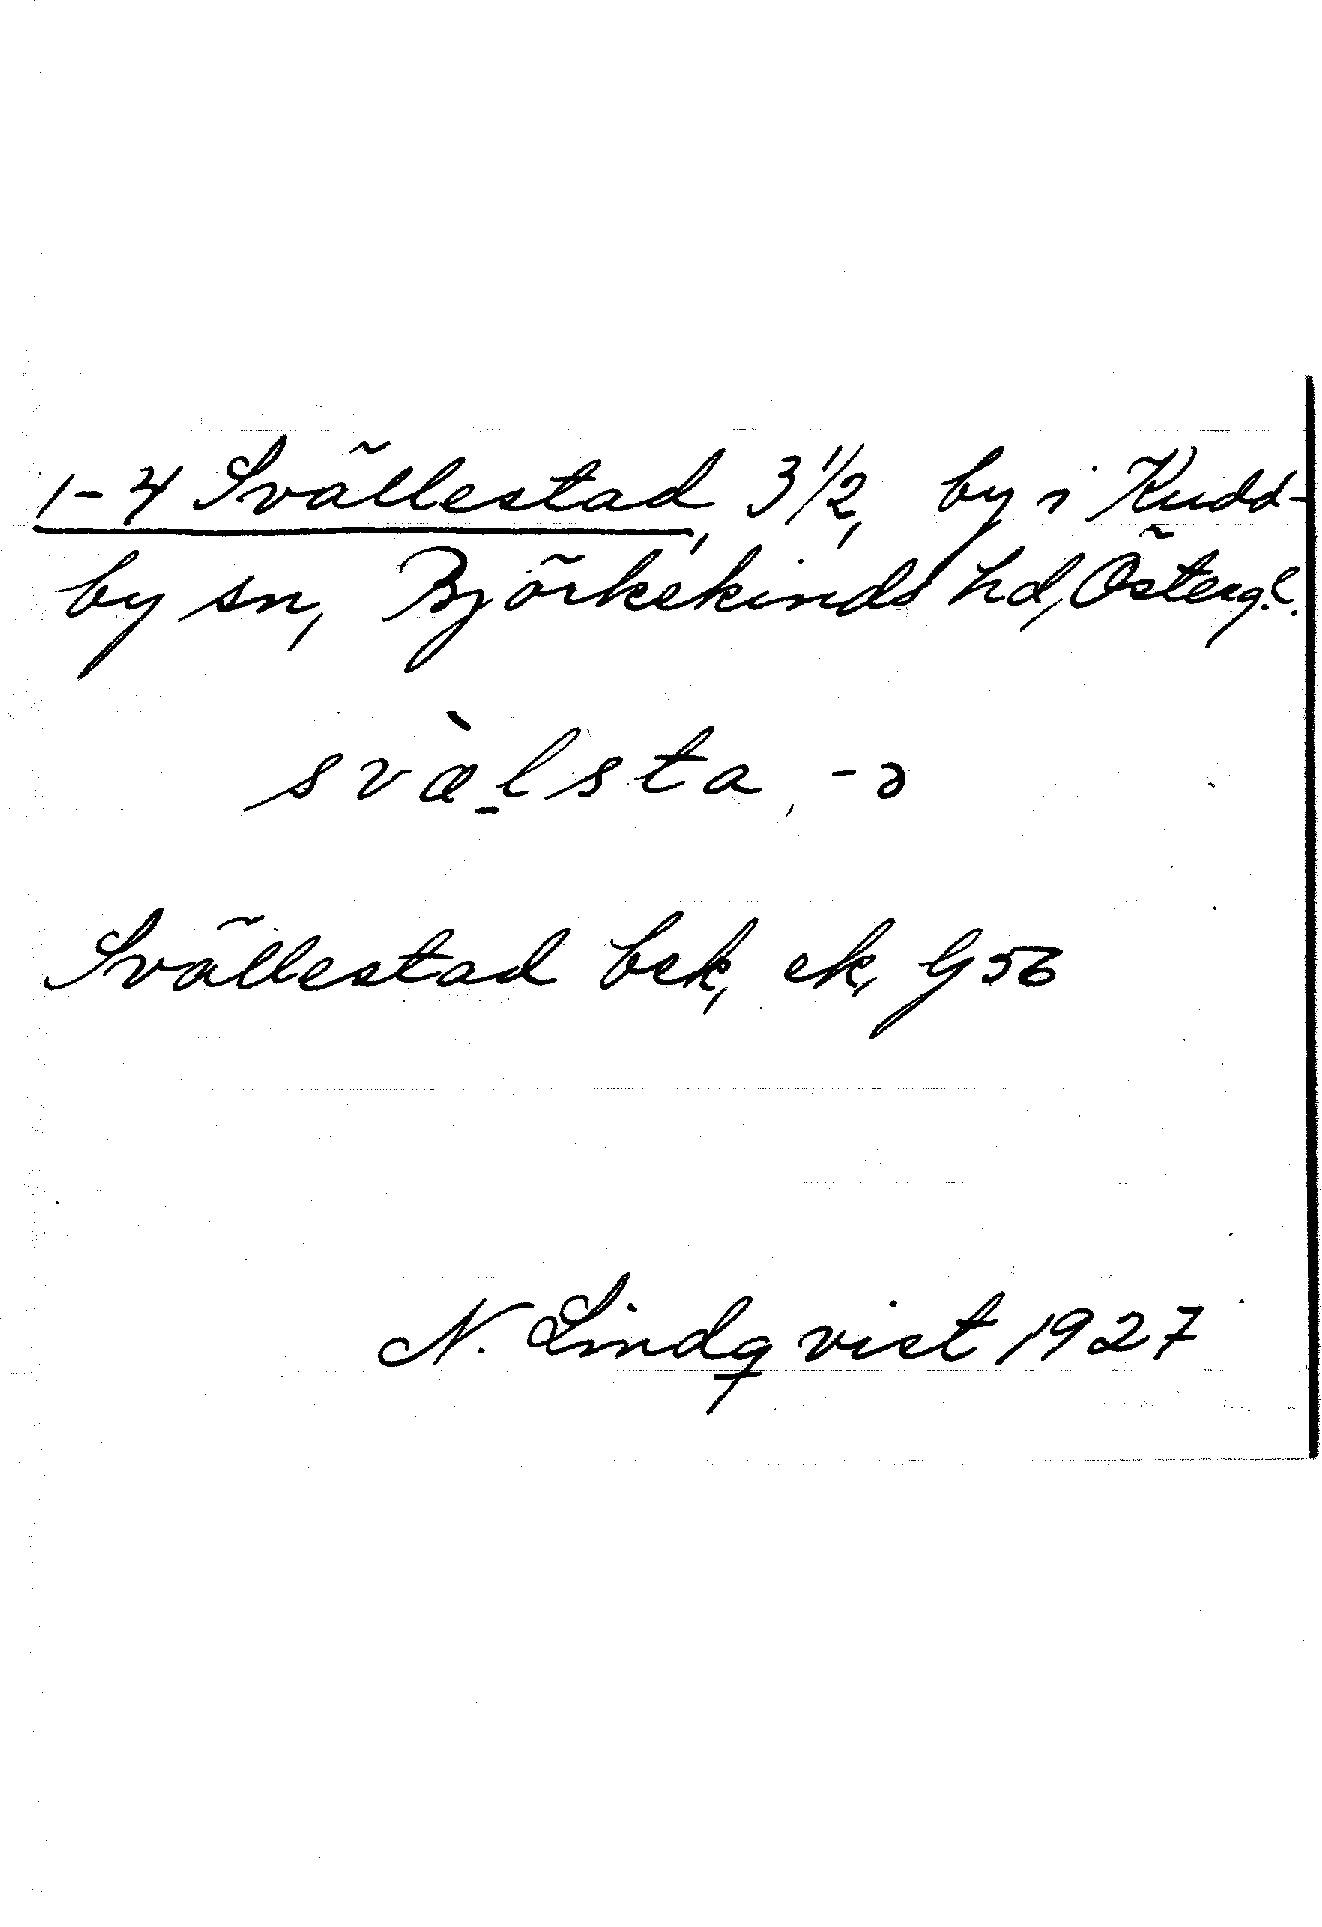 1-4 Svällestad, 3 1/2, by i Kudd-
by sn, Björkekinds hd, Östergl.
svæ̀l̠sta, -ə
Svällestad bek, ek, G56
N. Lindqvist 1927